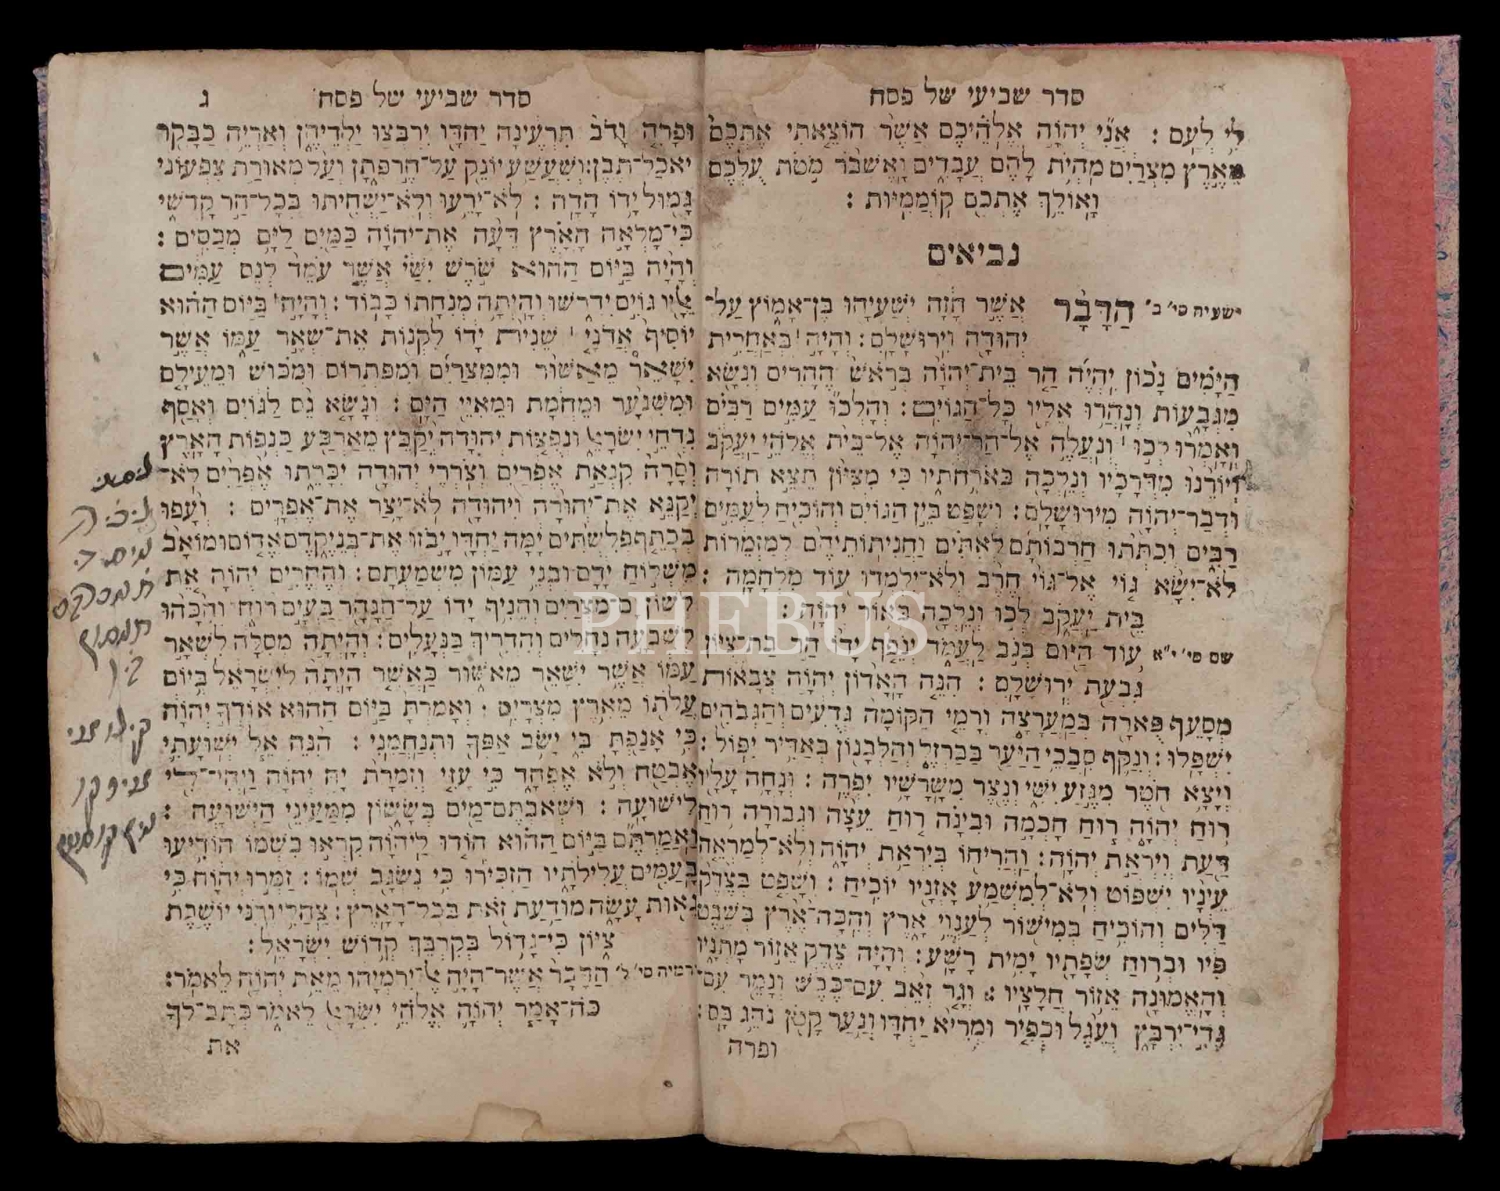 סדר שביעי של פסח
לי לעם : אני יהוה אלהיכם אשר הוצאתי אתכם
מארץ מצרים מהית להם עבדים ואשבר מטת עלכם
ואולך אתכם קוממיות :
נביאים
ישעיה סי׳ ב׳ הדבר אשר חזה ישעיהו בן־אמוץ על־
יהודה וירושלם : והיה באחרית
הימים נכון יהיה הר בית־יהוה בראש ההרים ונשא
מגבעות ונהרו אליו כל־הגוים : והלכו עמים רבים
ואמרו לכו ונעלה אל־הר־יהוה אל־בית אלהי יעקב
ויורנו מדרכיו ונלכה בארחתיו כי מציון תצא תורה
ודבר־יהוה מירושלם : ושפט בין הגוים והוכיח לעמים
רבים וכתתו חרבותם לאתים וחניתותיהם למזמרות
לא־ישא גוי אל־גוי חרב ולא־ילמדו עוד מלחמה :
בית יעקב לכו ונלכה באור יהוה :
שם סי׳ י״א עוד היום בנב לעמד ינפף ידו הר בת־ציון
גבעת ירושלם : הנה האדון יהוה צבאות
מסעף פארה במערצה ורמי הקומה גדעים והגבהים
ישפלו : ונקף סבכי היער בברזל והלבנון באדיר יפול :
ויצא חטר מגזע ישי ונצר משרשיו יפרה : ונחה עליו
רוח יהוה רוח חכמה ובינה רוח עצה וגבורה רוח
דעת ויראת יהוה : והריחו ביראת יהוה ולא־למראה
עיניו ישפוט ולא־למשמע אזניו יוכיח : ושפט בצדק
דלים והוכיח במישור לענוי ארץ והכה־ארץ בשבט
פיו וברוח שפתיו ימית רשע : והיה צדק אזור מתניו
והאמונה אזור חלציו : וגר זאב עם־כבש ונמר עם־
גדי־ירבץ ועגל וכפיר ומריא יחדו ונער קטן נהג בם :
ופרה
סדר שביעי של פסח ג
ופרה ודב תרעינה יחדו ירבצו ילדיהן ואריה כבקר
יאכל־תבן : ושעשע יונק על־חר פתן ועל מאורת צפעוני
גמול ידו הדה : לא־ירעו ולא־ישחיתו בכל־הר קדשי
כי־מלאה הארץ דעה את־יהוה כמים לים מכסים :
והיה ביום ההוא שרש ישי אשר עמד לנס עמים
אליו גוים ידרשו והיתה מנחתו כבוד : והיה ביום ההוא
יוסיף אדני שנית ידו לקנות את־שאר עמו אשר
ישאר מאשור וממצרים ומפתרוס ומכוש ומעילם
ומשנער ומחמת ומאיי הים : ונשא נס לגוים ואסף
נדחי ישראל ונפצות יהודה יקבץ מארבע כנפות הארץ
וסרה קנאת אפרים וצררי יהודה יכרתו אפרים לא־
יקנא את־יהודה ויהודה לא־יצר את־אפרים : ועפו
בכתף פלשתים ימה יחדו יבזו את־בני קדם אדום ומואב
משלוח ידם ובני עמון משמעתם : והחרים יהוה את
לשון ים־מצרים והניף ידו על־הנהר בעים רוחו והכהו
לשבעה נחלים והדריך בנעלים : והיתה מסלה לשאר
עמו אשר ישאר מאשור כאשר היתה לישראל ביום
עלתו מארץ מצרים . ואמרת ביום ההוא אודך יהוה
כי אנפת בי ישב אפך ותנחמני : הנה אל ישועתי
אבטח ולא אפחד כי עזי וזמרת יה יהוה ויהי־לי
לישועה : ושאבתם־מים בששון ממעיני הישועה :
ואמרתם ביום ההוא הודו ליהוה קראו בשמו הודיעו
בעמים עלילתיו הזכירו כי נשגב שמו : זמרו יהוה כי
גאות עשה מודעת זאת בכל־הארץ : צהלי ורני יושבת
ציון כי־גדול בקרבך קדוש ישראל :
ירמיה סי׳ ל׳ הדבר אשר־היה אל־ירמיהו מאת יהוה לאמר :
כה־אמר יהוה אלהי ישראל לאמר כתב־לך
את
PHEBUS